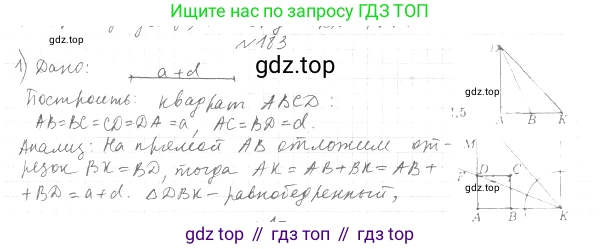 Ищите нас по запросу ГДЗ ТОП
№183
1) Дано: a+d
gdz.top
Построить: квадрат ABCD:
AB=BC=CD=DA=a, AC=BD=d.
Анализ: На прямой AB отложим от-
резок BK=BD, тогда AK=AB+BK=AB+
+BD=a+d. △DBK-равнобедренный,
A B K
M
D C
A B K
gdz.top // gdz.top // gdz.top